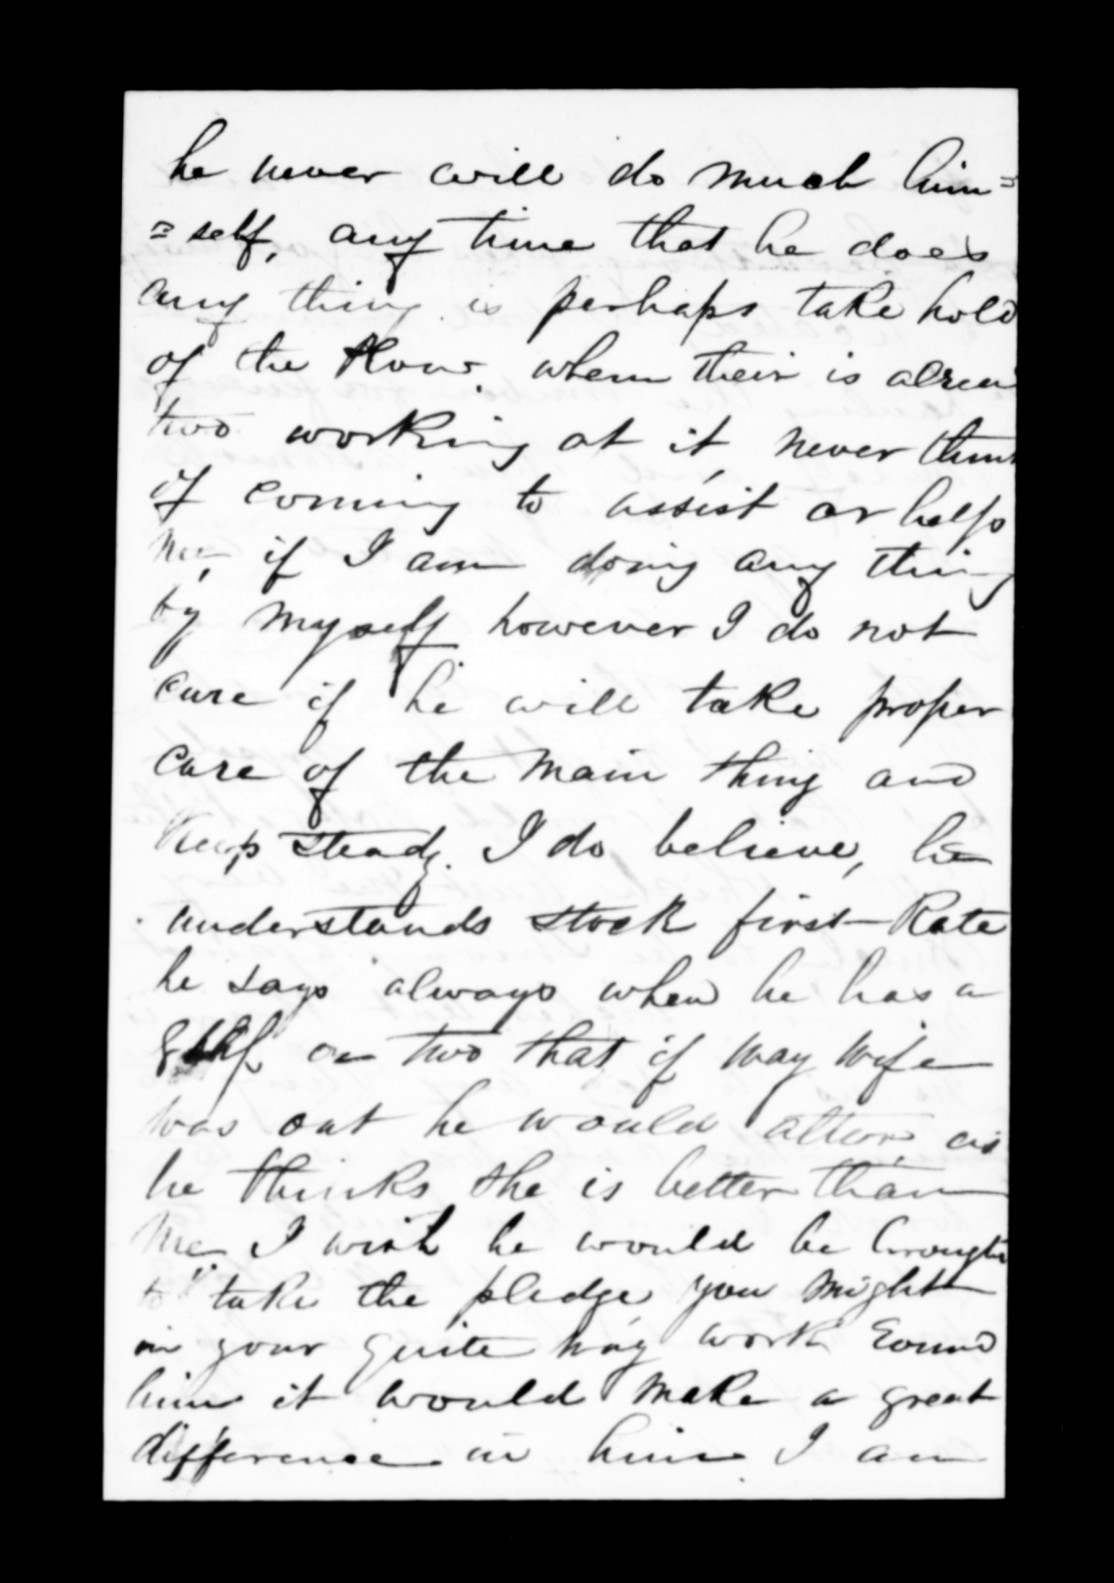 he never will do much him=
=self, any time that he does
any thing is perhaps take hold
of the Plow when their is
two working at it never think
of coming to assist or help
me, if I am doing any thing
by myself however I do not
care if he will take proper
care of the main thing and
Keep steady. I do believe, he
understands stock first-Rate
he says always when he has a
or two that if may wife
was out he would as
he thinks she is better than
me I wish he would be brought
to take the pledge you might
in your quite way work round
him it would make a great
difference in him I am